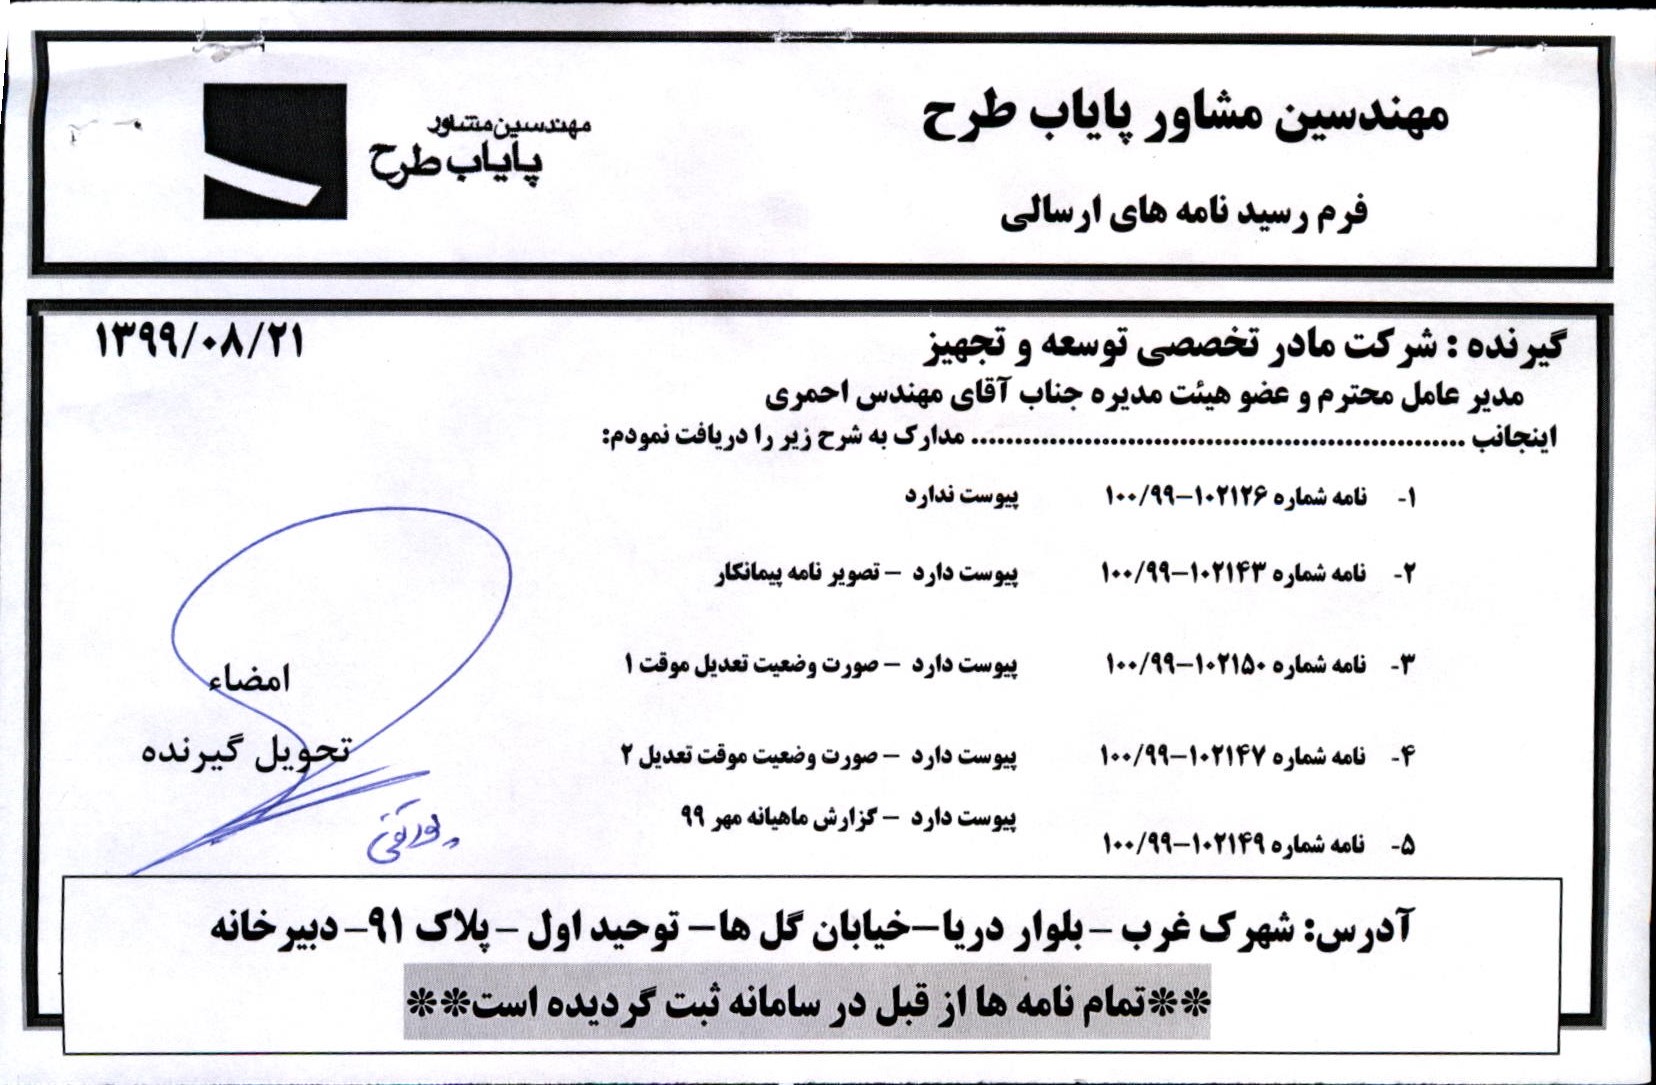 مهندسین مشاور پایاب طرح
فرم رسید نامه های ارسالی
مهندسین مشاور
پایاب طرح
گیرنده : شرکت مادر تخصصی توسعه و تجهیز
۱۳۹۹/۰۸/۲۱
مدیر عامل محترم و عضو هیئت مدیره جناب آقای مهندس احمری
اینجانب ........................................................ مدارک به شرح زیر را دریافت نمودم:
۱- نامه شماره ۱۰۲۱۲۶–۱۰۰/۹۹ پیوست ندارد
۲- نامه شماره ۱۰۲۱۴۳–۱۰۰/۹۹ پیوست دارد – تصویر نامه پیمانکار
۳- نامه شماره ۱۰۲۱۵۰–۱۰۰/۹۹ پیوست دارد – صورت وضعیت تعدیل موقت ۱
۴- نامه شماره ۱۰۲۱۴۷–۱۰۰/۹۹ پیوست دارد – صورت وضعیت موقت تعدیل ۲
۵- نامه شماره ۱۰۲۱۴۹–۱۰۰/۹۹ پیوست دارد – گزارش ماهیانه مهر ۹۹
امضاء
تحویل گیرنده
آدرس: شهرک غرب – بلوار دریا–خیابان گل ها– توحید اول –پلاک ۹۱– دبیرخانه
**تمام نامه ها از قبل در سامانه ثبت گردیده است**